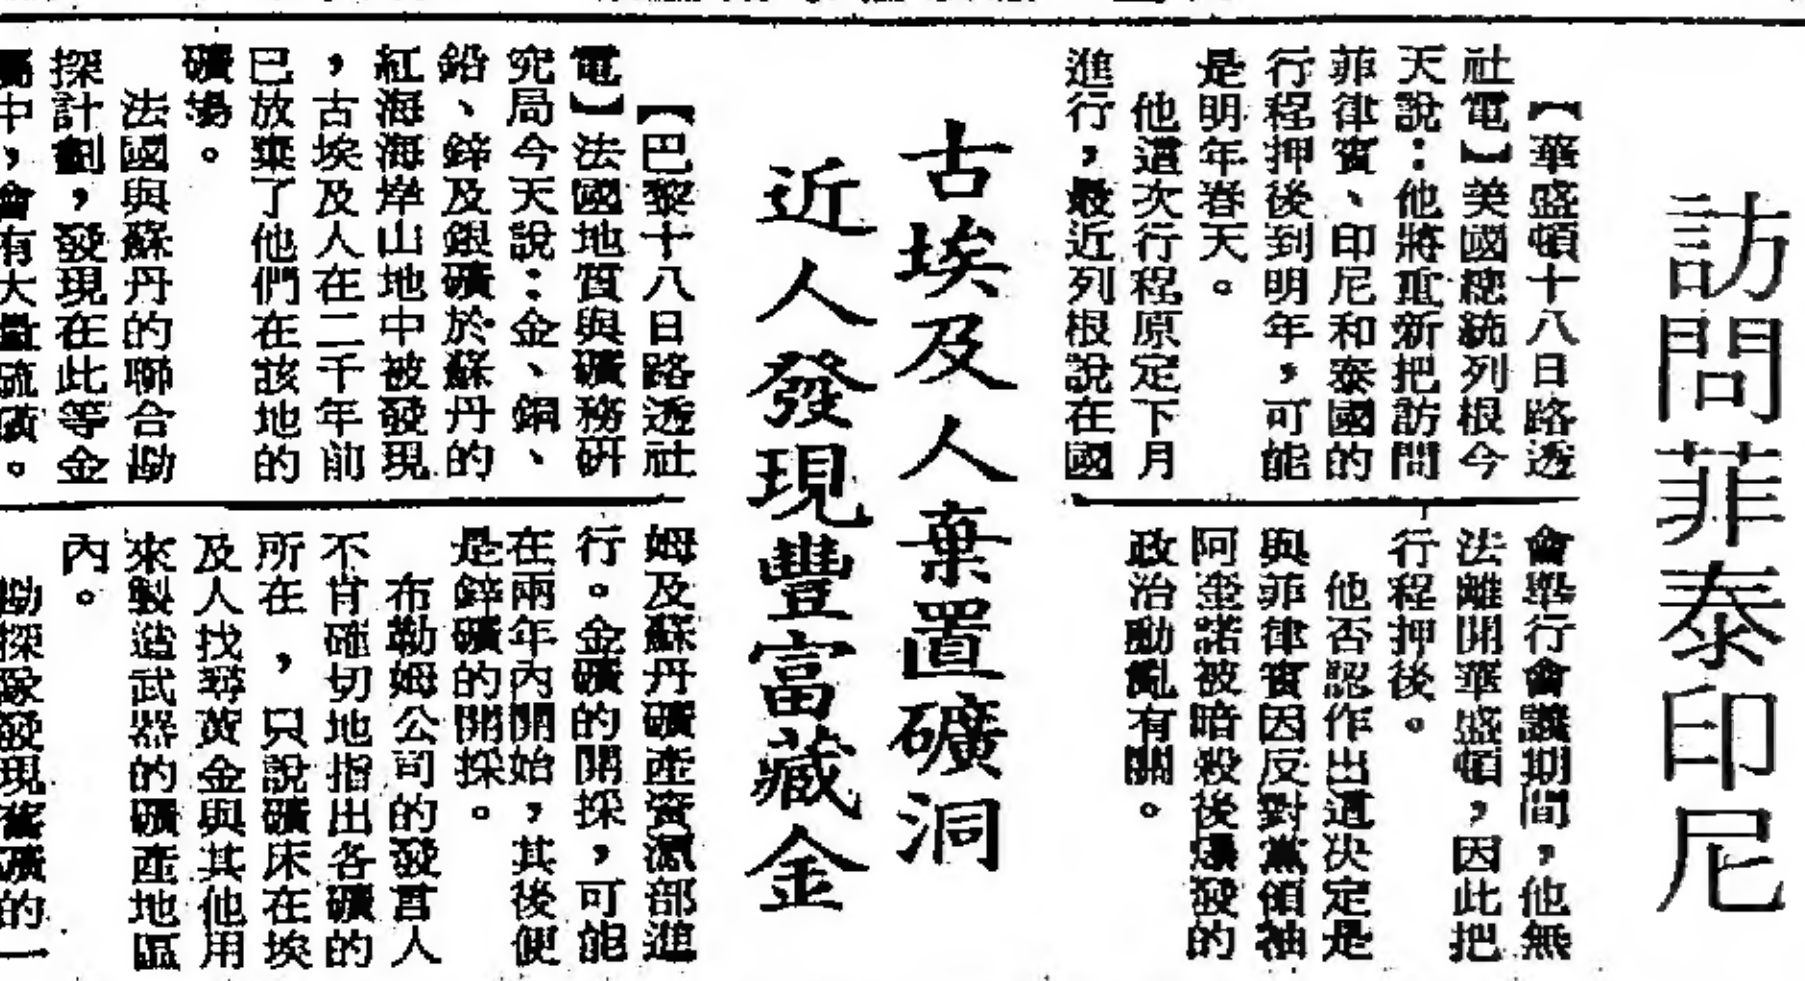 訪問菲泰印尼
【華盛頓十八日路透
社電】美國總統列根今
天說：他將重新把訪問
菲律賓、印尼和泰國的
行程押後到明年，可能
是明年春天。
他這次行程原定下月
進行，最近列根說在國
會舉行會議期間，他無
法離開華盛頓，因此把
行程押後。
他否認作出這決定是
與菲律賓因反對黨領袖
阿奎諾被暗殺後爆發的
政治動亂有關。
古埃及人棄置礦洞
近人發現豐富藏金
【巴黎十八日路透社
電】法國地質與礦務研
究局今天說：金、銅、
鉛、鋅及銀礦於蘇丹的
紅海海岸山地中被發現
，古埃及人在二千年前
已放棄了他們在該地的
礦場。
法國與蘇丹的聯合勘
探計劃，發現在此等金
屬中，會有大量硫磺。
姆及蘇丹礦產資源部進
行。金礦的開採，可能
在兩年內開始，其後便
是鋅礦的開採。
布勒姆公司的發言人
不肯確切地指出各礦的
所在，只說礦床在埃
及人找尋黃金與其他用
來製造武器的礦產地區
內。
勘探隊發現舊礦的一